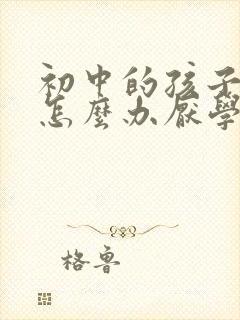 初中的孩子
怎麼办厭學
格魯